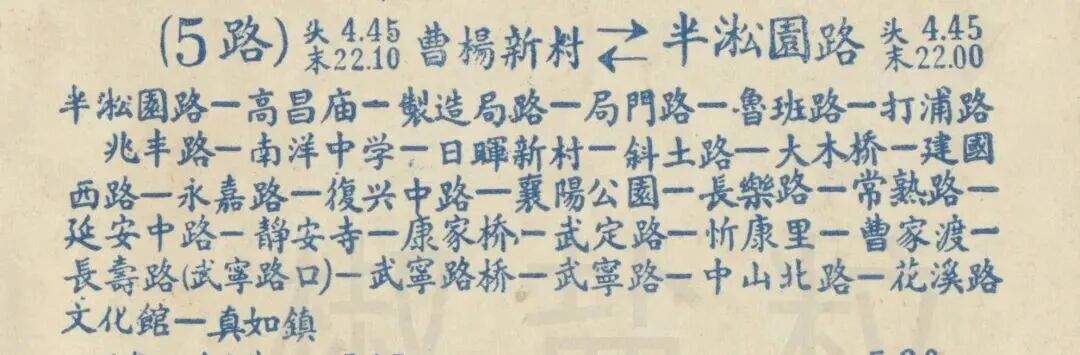 (5路) 头4.45 末22.10 曹楊新村⇄半淞園路 头4.45 末22.00
半淞園路—高昌庙—製造局路—局門路—魯班路—打浦路
兆丰路—南洋中学—日暉新村—斜土路—大木桥—建國
西路—永嘉路—復兴中路—襄陽公園—長樂路—常熟路—
延安中路—靜安寺—康家桥—武定路—忻康里—曹家渡—
長壽路(武寧路口)—武寧路桥—武寧路—中山北路—花溪路
文化館—真如鎮